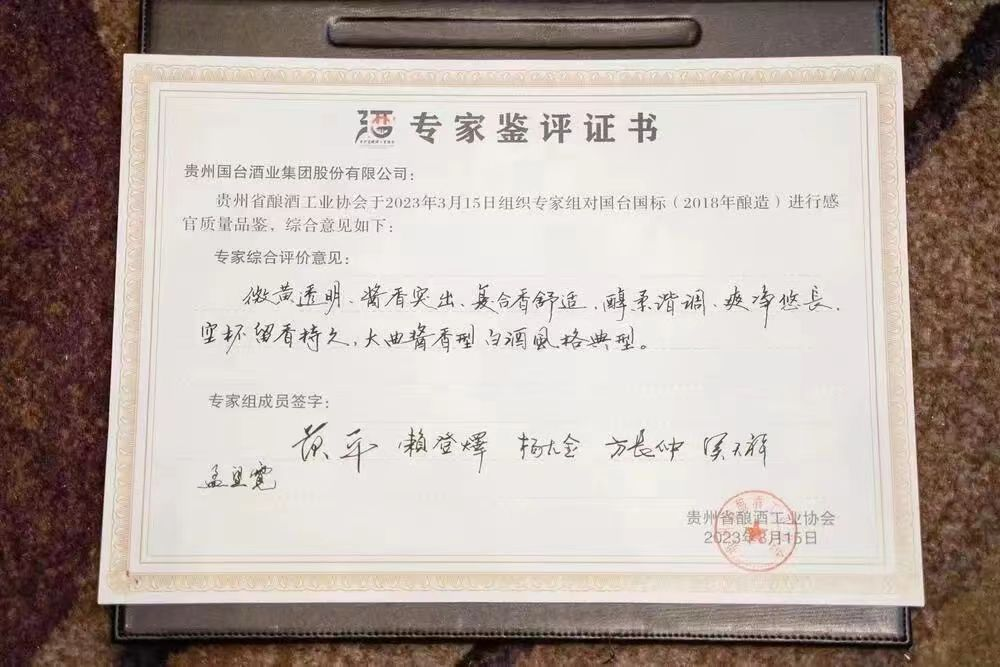 专家鉴评证书
贵州国台酒业集团股份有限公司：
贵州省酿酒工业协会于2023年3月15日组织专家组对国台国标（2018年酿造）进行感
官质量品鉴，综合意见如下：
专家综合评价意见：
微黄透明、酱香突出、复合香舒适、醇柔谐调、爽净悠长、
空杯留香持久，大曲酱香型白酒风格典型。
专家组成员签字：
黄平 賴登燡 杨大金 方長仲 吴天祥
孟望霓
贵州省酿酒工业协会
2023年3月15日